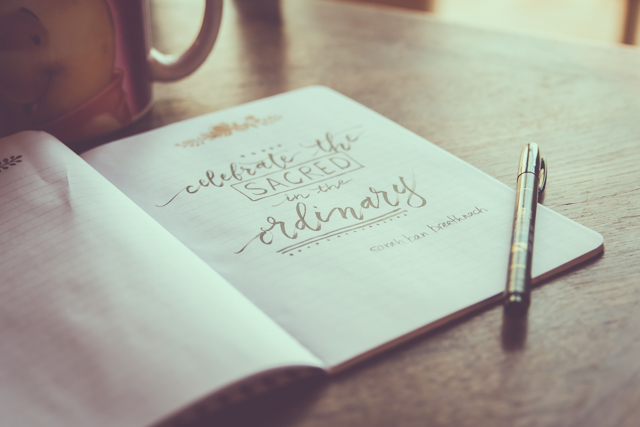 celebrate the
SACRED
in the
ordinary
sarah ban breathnach